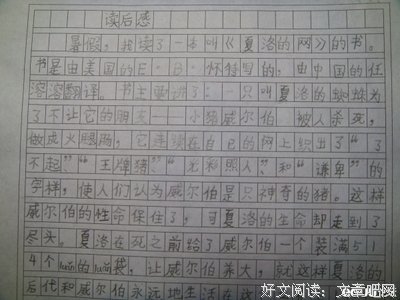 读后感
暑假,我读了一本叫《夏洛的网》的书。
书是由美国的E·B·怀特写的,由中国的任
溶溶翻译。书主要讲了:一只叫夏洛的蜘蛛为
了不让它的朋友——小猪威尔伯 被人杀死,
做成火腿肠,它连续在自己的网上织出了“了
不起”、“王牌猪”、“光彩照人”、和“谦卑”的
字样,使人们认为威尔伯是只神奇的猪。这样
威尔伯的性命保住了,可夏洛的生命却走到了
尽头。夏洛在死之前给了威尔伯一个装满51
4个luǎn的luǎn袋,让威尔伯养大,就这样夏洛的
后代和威尔伯永远地生活在这
好文阅读:文章吧网